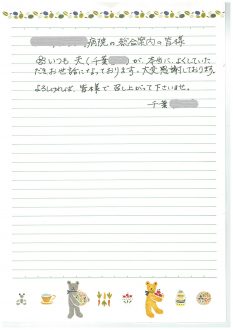 病院の総合案内の皆様
いつも夫(千葉 が、本当に、よくしていた
だきお世話になっております。大変感謝しております。
よろしければ、皆様で召し上がって下さいませ。
千葉